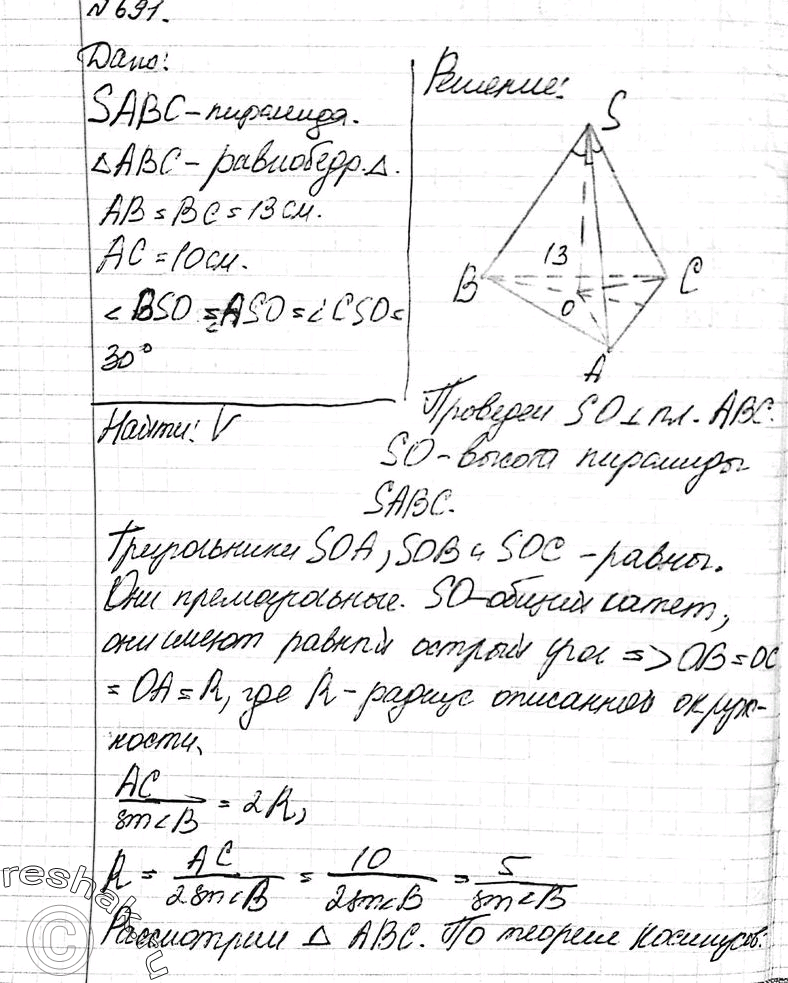 № 691.
Дано:
SABC – пирамида.
△ABC – равнобедр. △.
AB = BC = 13 см.
AC = 10 см.
∠BSO = ∠ASO = ∠CSO =
30°
Найти: V
Решение:
S
B
13
C
O
A
Проведем SO ⊥ пл. ABC.
SO – высота пирамиды
SABC.
Треугольники SOA, SOB и SOC – равны.
Они прямоугольные. SO – общий катет,
они имеют равный острый угол => OB = OC
= OA = R, где R – радиус описанной окруж-
ности.
AC / sin∠B = 2R,
R = AC / 2sin∠B = 10 / 2sin∠B = 5 / sin∠B
Рассмотрим △ ABC. По теореме косинусов.
reshak.ru
©